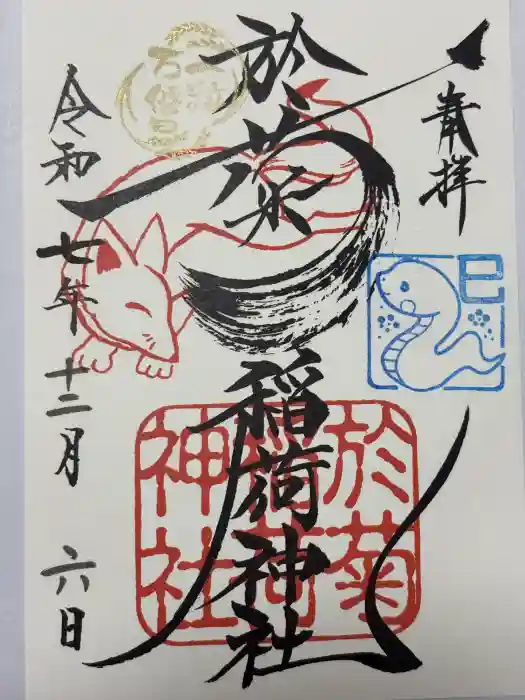 奉拝
於菊稲荷神社
令和七年十二月六日
巳
於菊
稲荷
神社